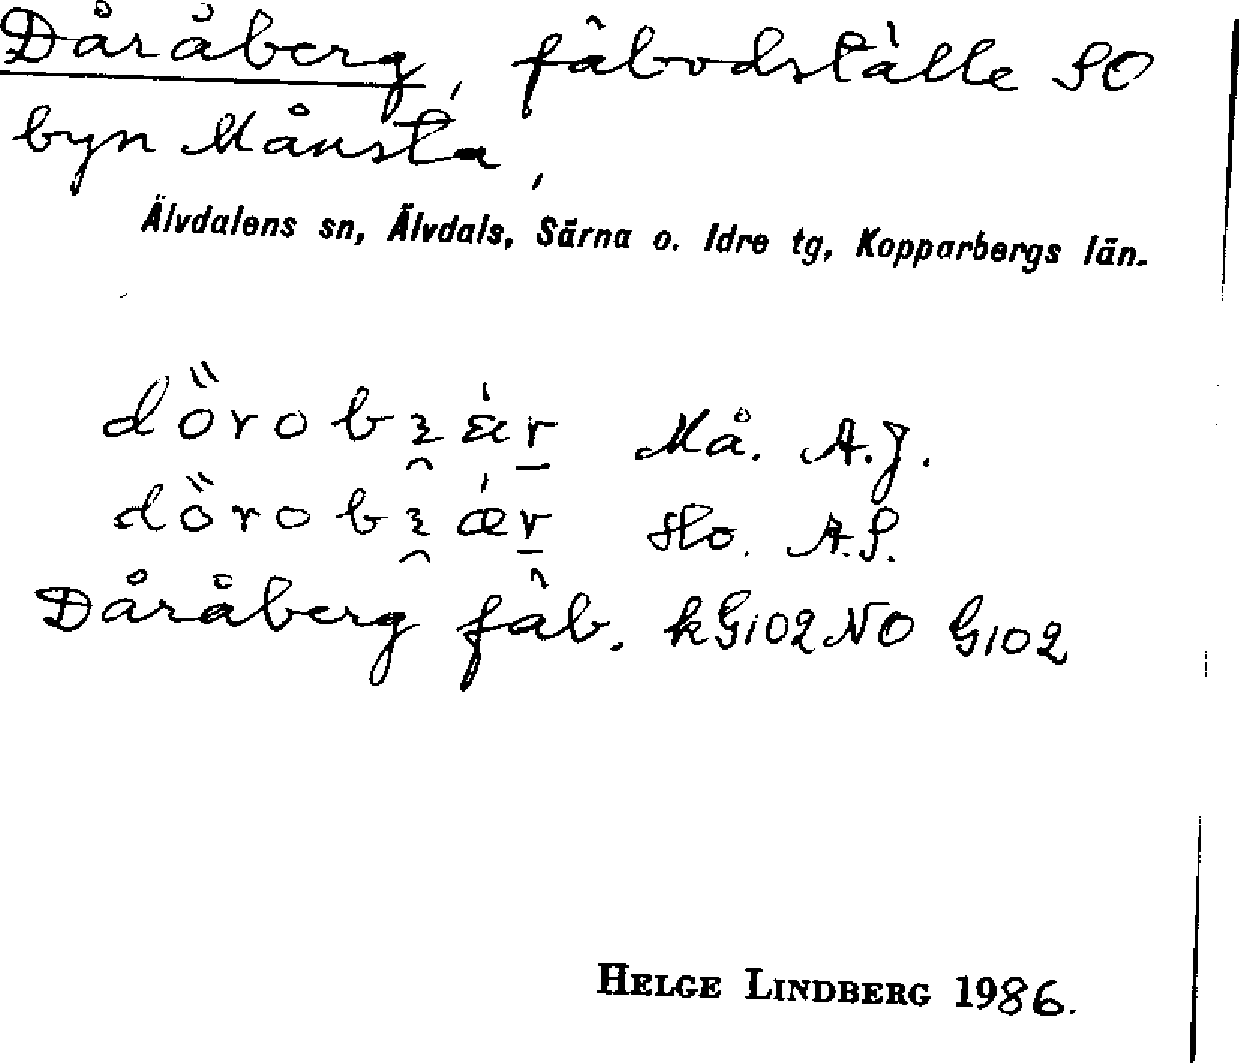 Dåråberg, fäbodställe SO
byn Månsta,
Älvdalens sn, Älvdals, Särna o. Idre tg, Kopparbergs län.
Må. A.J.
A.S.
Dåråberg fäb. kG102NO G102
HELGE LINDBERG 1986.